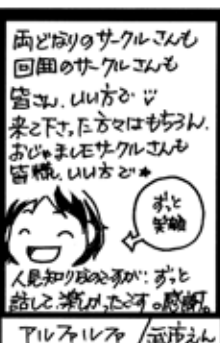 両どなりのサークルさんも
回囲のサークルさんも
皆さん、いい方で♡
来て下さった方々はもちろん、
おじゃましたサークルさんも
皆様、いい方で★
ずっと
笑顔
人見知りなのですが…ずっと
話して楽しかったです。感謝。
アルファルファ／